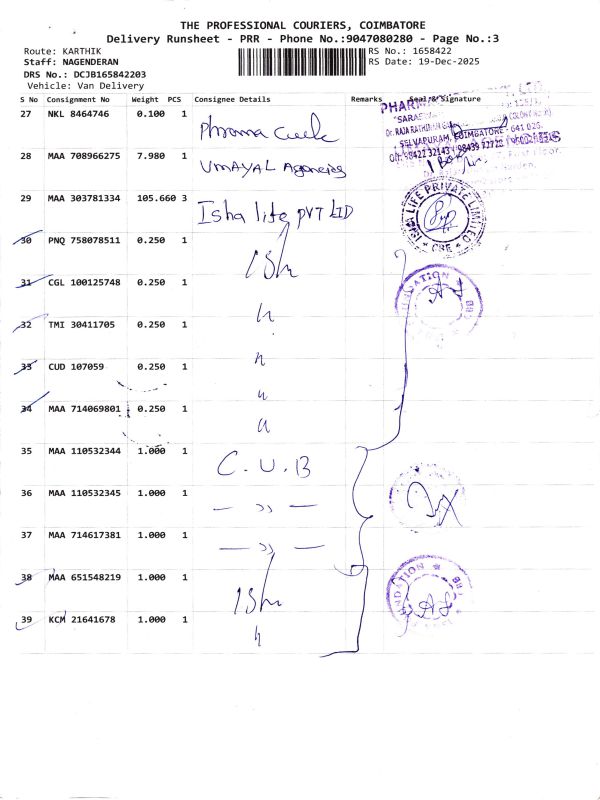 THE PROFESSIONAL COURIERS, COIMBATORE
Delivery Runsheet - PRR - Phone No.:9047080280 - Page No.:3
Route: KARTHIK
RS No.: 1658422
Staff: NAGENDERAN
RS Date: 19-Dec-2025
DRS No.: DCJB165842203
Vehicle: Van Delivery
S No Consignment No Weight PCS Consignee Details Remarks Seal & Signature
27 NKL 8464746 0.100 1
28 MAA 708966275 7.980 1 UMAYAL Agencies
SELVAPURAM, COIMBATORE - 641 026.
29 MAA 303781334 105.660 3 Isha life PVT LTD
ISHA LIFE PRIVATE LIMITED
CBE
30 PNQ 758078511 0.250 1 Ish
31 CGL 100125748 0.250 1 "
32 TMI 30411705 0.250 1 "
33 CUD 107059 0.250 1 "
34 MAA 714069801 0.250 1 "
35 MAA 110532344 1.000 1 C.U.B
36 MAA 110532345 1.000 1 — ,, —
37 MAA 714617381 1.000 1 — ,, —
38 MAA 651548219 1.000 1 Ish
39 KCM 21641678 1.000 1 "